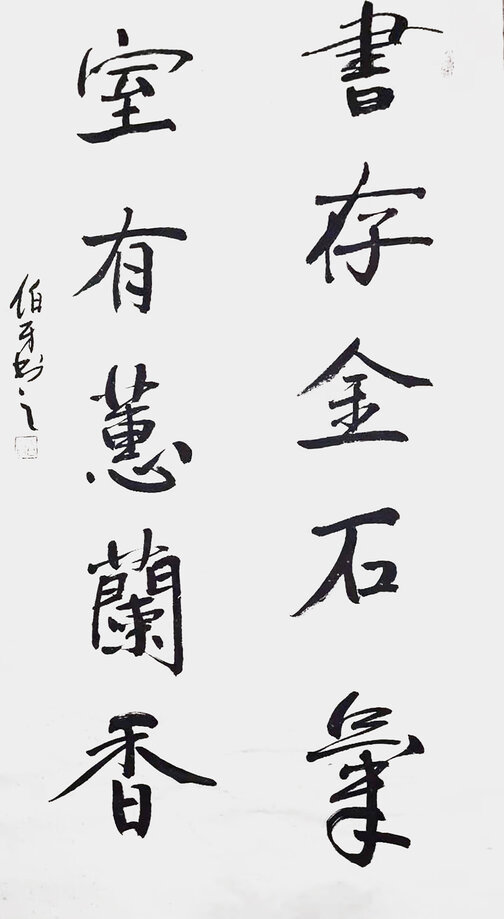 書存金石氣
室有蕙蘭香
伯牙书之